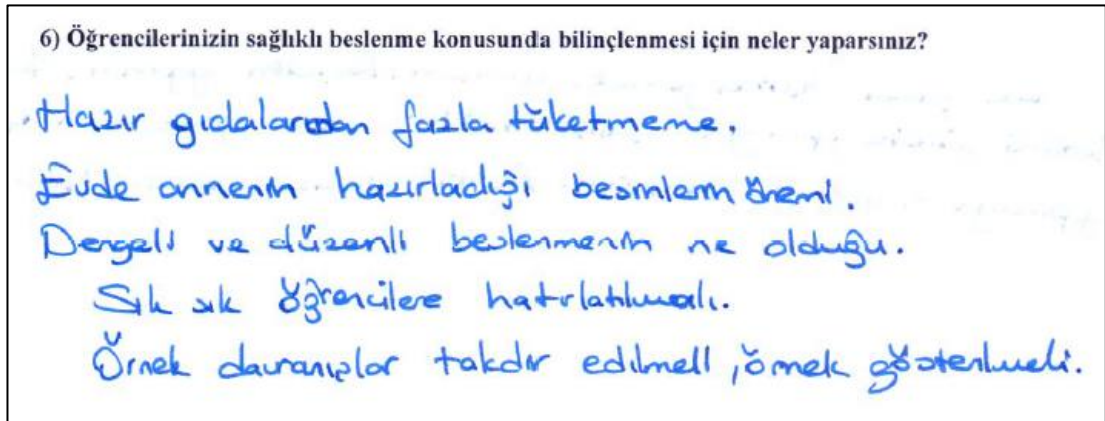 6) Öğrencilerinizin sağlıklı beslenme konusunda bilinçlenmesi için neler yaparsınız?
Hazır gıdalardan fazla tüketmeme.
Evde annenin hazırladığı besinlerin önemi.
Dengeli ve düzenli beslenmenin ne olduğu.
Sık sık öğrencilere hatırlatılmalı.
Örnek davranışlar takdir edilmeli, örnek gösterilmeli.